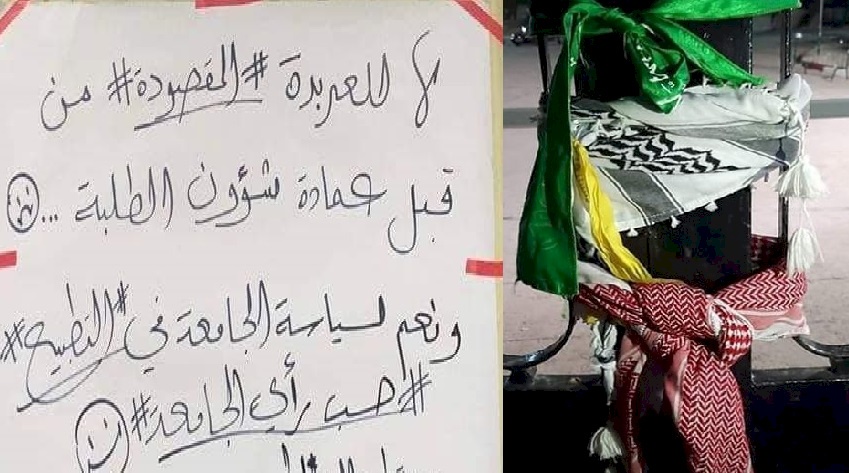 لا للعربدة #المقصودة# من
قبل عمادة شؤون الطلبة ...
ونعم لسياسة الجامعة في #التطبيع#
#حسب رأي الجامعة#